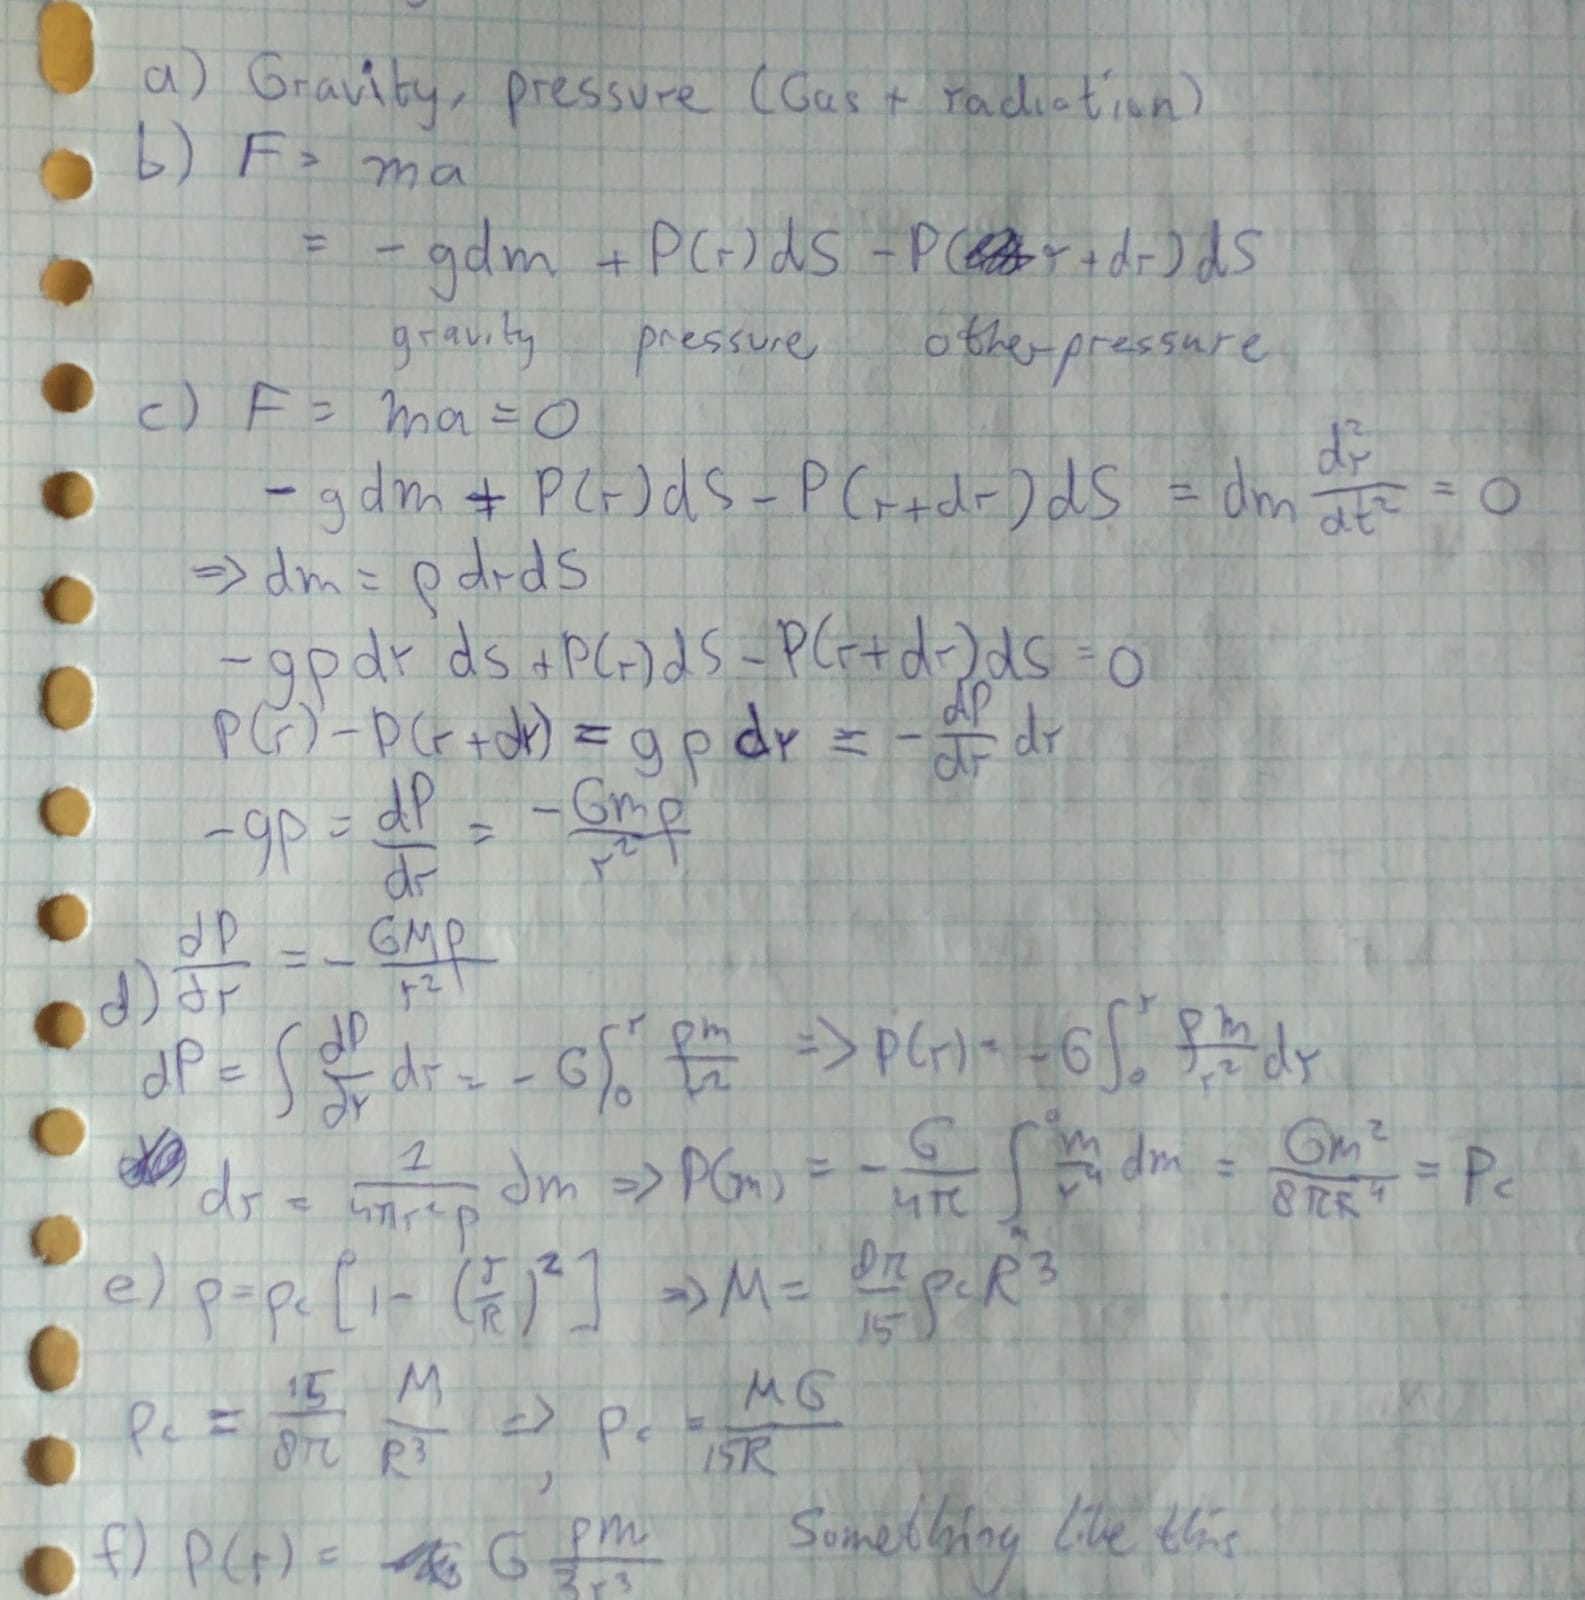 a) Gravity, pressure (Gas + radiation)
b) F = ma
= - gdm + P(r)dS - P(r+dr)dS
gravity pressure other pressure
c) F = ma = 0
- gdm + P(r)dS - P(r+dr)dS = dm d²r/dt² = 0
=> dm = ρ dr dS
- gρ dr dS + P(r)dS - P(r+dr)dS = 0
P(r) - P(r+dr) = gρ dr = - dP/dr dr
- gρ = dP/dr = -Gmρ/r²
d) dP/dr = - GMρ/r²
dP = ∫ dP/dr dr = - G∫₀ʳ ρm/r² => P(r) = - G∫₀ʳ ρm/r² dr
dr = 1/4πr²ρ dm => P(m) = - G/4π ∫ₘ⁰ m/r⁴ dm = Gm²/8πR⁴ = Pc
e) ρ = ρc [1 - (r/R)²] => M = 8π/15 ρc R³
ρc = 15/8π M/R³ => , Pc = MG/15R
f) P(r) = G ρm/3r³ Something like this